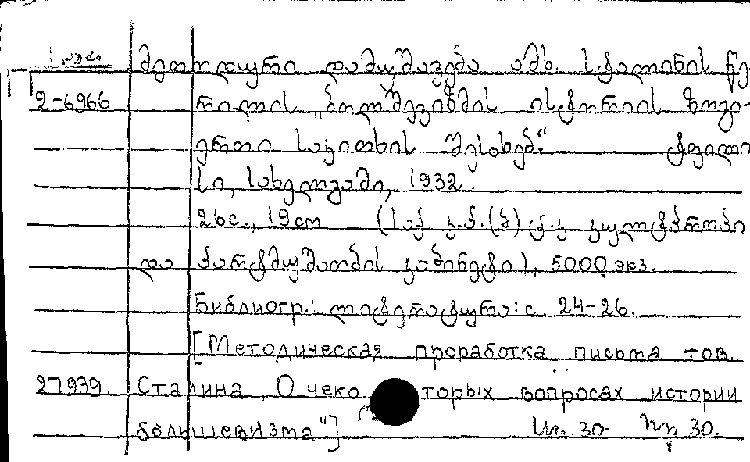 მეთოდური დამუშავება ამხ. სტალინის წე-
2-6966 რილის „ბოლშევიზმის ისტორიის ზოგი-
ერთი საკითხის შესახებ." ტფილი
სი, სახელგამი, 1932
26с., 19см (საქ კ.პ.(ბ) ც.კ კულტპროპი
და პარტმუშაობის კაბინეტი), 5000 экз.
Библиогр.: ლიტერატურა: с 24-26.
[Методическая проработка письма тов.
27939. Сталина „О неко торых вопросах истории
большевизма"]
30 30.